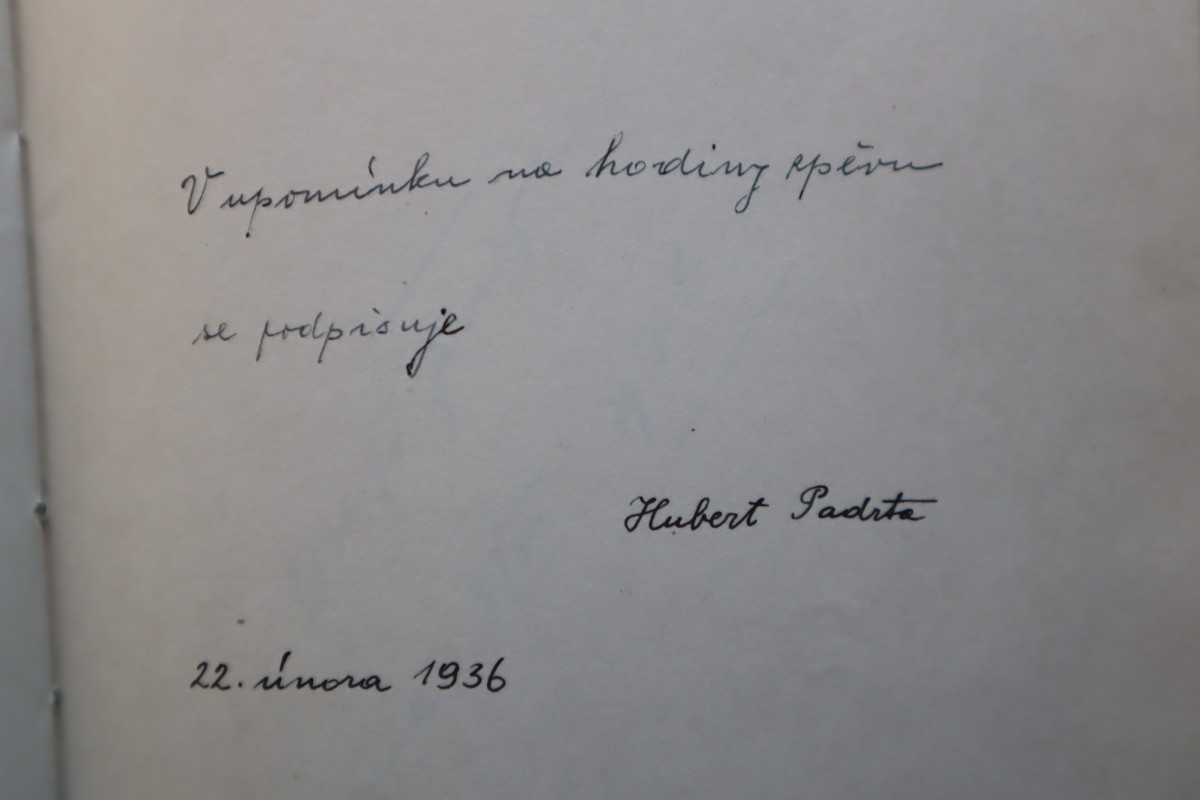 V upomínku na hodiny zpěvu
se podpisuje
Hubert Padrta
22. února 1936